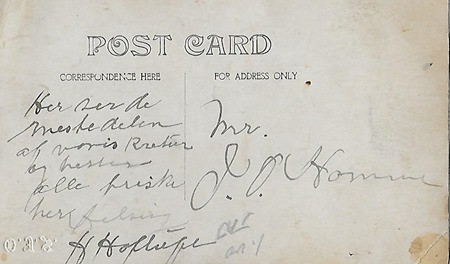 POST CARD
CORRESPONDENCE HERE
FOR ADDRESS ONLY
Her ser de
meste delen
af voris Kretur
og hester
alle friske
her
Mr.
J. O. Homme